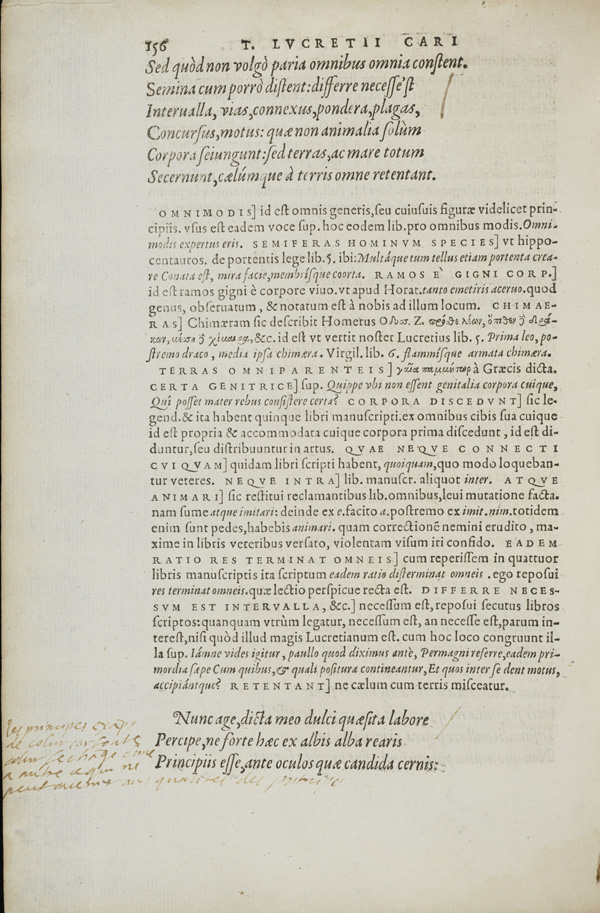 156 T. LVCRETII CARI
Sed quòd non volgò paria omnibus omnia constent.
Semina cum porrò distent: differre necesse'st
Interualla, vias, connexus, pondera, plagas,
Concursus, motus: quæ non animalia solùm
Corpora seiungunt: sed terras, ac mare totum
Secernunt, cælúmque à terris omne retentant.
OMNIMODIS] id est omnis generis, seu cuiusuis figuræ videlicet prin-
cipiis. vsus est eadem voce sup. hoc eodem lib. pro omnibus modis. Omni-
modis expertus eris. SEMIFERAS HOMINVM SPECIES] vt hippo-
centauros. de portentis lege lib. 5. ibi: Multáque tum tellus etiam portenta crea-
re Conata est, mira facie, membrísque coorta. RAMOS È GIGNI CORP.]
id est ramos gigni è corpore viuo. vt apud Horat. tanto emetiris aceruo. quod
genus, obseruatum, & notatum est à nobis ad illum locum. CHIMAE-
RAS] Chimæram sic describit Homerus Οδυσ. Ζ. πρόσθε λέων, ὄπιθεν δὲ δρά-
κων, μέσση δὲ χίμαιρα, &c. id est vt vertit noster Lucretius lib. 5. Prima leo, po-
stremo draco, media ipsa chimæra. Virgil. lib. 6. flammísque armata chimæra.
TERRAS OMNIPARENTEIS] γαῖα παμμήτωρ à Græcis dicta.
CERTA GENITRICE] sup. Quippe vbi non essent genitalia corpora cuique,
Quî posset mater rebus consistere certa? CORPORA DISCEDVNT] sic le-
gend. & ita habent quinque libri manuscripti. ex omnibus cibis sua cuique
id est propria & accommodata cuique corpora prima discedunt, id est di-
duntur, seu distribuuntur in artus. QVAE NEQVE CONNECTI
CVIQVAM] quidam libri scripti habent, quoiquam, quo modo loqueban-
tur veteres. NEQVE INTRA] lib. manuscr. aliquot inter. ATQVE
ANIMARI] sic restitui reclamantibus lib. omnibus, leui mutatione facta.
nam sume atque imitari: deinde ex e. facito a. postremo ex imit. nim. totidem
enim sunt pedes, habebis animari. quam correctionē nemini erudito, ma-
xime in libris veteribus versato, violentam visum iri confido. EADEM
RATIO RES TERMINAT OMNEIS] cum reperissem in quattuor
libris manuscriptis ita scriptum eadem ratio disterminat omneis. ego reposui
res terminat omneis. quæ lectio perspicue recta est. DIFFERRE NECES-
SVM EST INTERVALLA, &c.] necessum est, reposui secutus libros
scriptos: quanquam vtrùm legatur, necessum est, an necesse est, parum in-
terest, nisi quòd illud magis Lucretianum est. cum hoc loco congruunt il-
la sup. Iámne vides igitur, paullo quod diximus antè, Permagni referre, eadem pri-
mordia sæpe Cum quibus, & quali positura contineantur, Et quos inter se dent motus,
accipiántque? RETENTANT] ne cælum cum terris misceatur.
Nunc age, dicta meo dulci quæsita labore
Percipe, ne forte hæc ex albis alba rearis
Principiis esse, ante oculos quæ candida cernis:
les principes
de